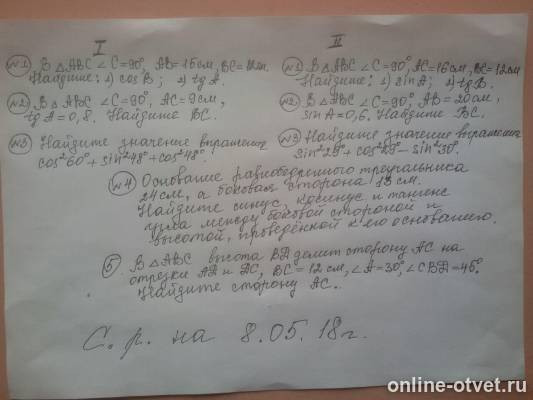 I
№1 В △ABC ∠C=90°, AB=15см, BC=
Найдите: 1) cos B; 2) tg A.
№2 В △ABC ∠C=90°, AC=9см,
tg A=0,8. Найдите BC.
№3 Найдите значение выражения
cos²60°+sin²48°+cos²48°.
II
№1 В △ABC ∠C=90°, AC=16см, BC=12см
Найдите: 1) sin A; 2) tg B.
№2 В △ABC ∠C=90°, AB=20см,
sin A=0,6. Найдите BC.
№3 Найдите значение выражения
sin²29°+cos²29°-sin²30°.
№4 Основание равнобедренного треугольника
24см, а боковая сторона см.
Найдите синус, косинус и тангенс
угла между боковой стороной и
высотой, проведённой к его основанию.
5 В △ABC высота BD делит сторону AC на
отрезки AD и DC, BC=12см, ∠A=30°, ∠CBD=45°.
Найдите сторону AC.
С. р. на 8.05.18г.
online-otvet.ru